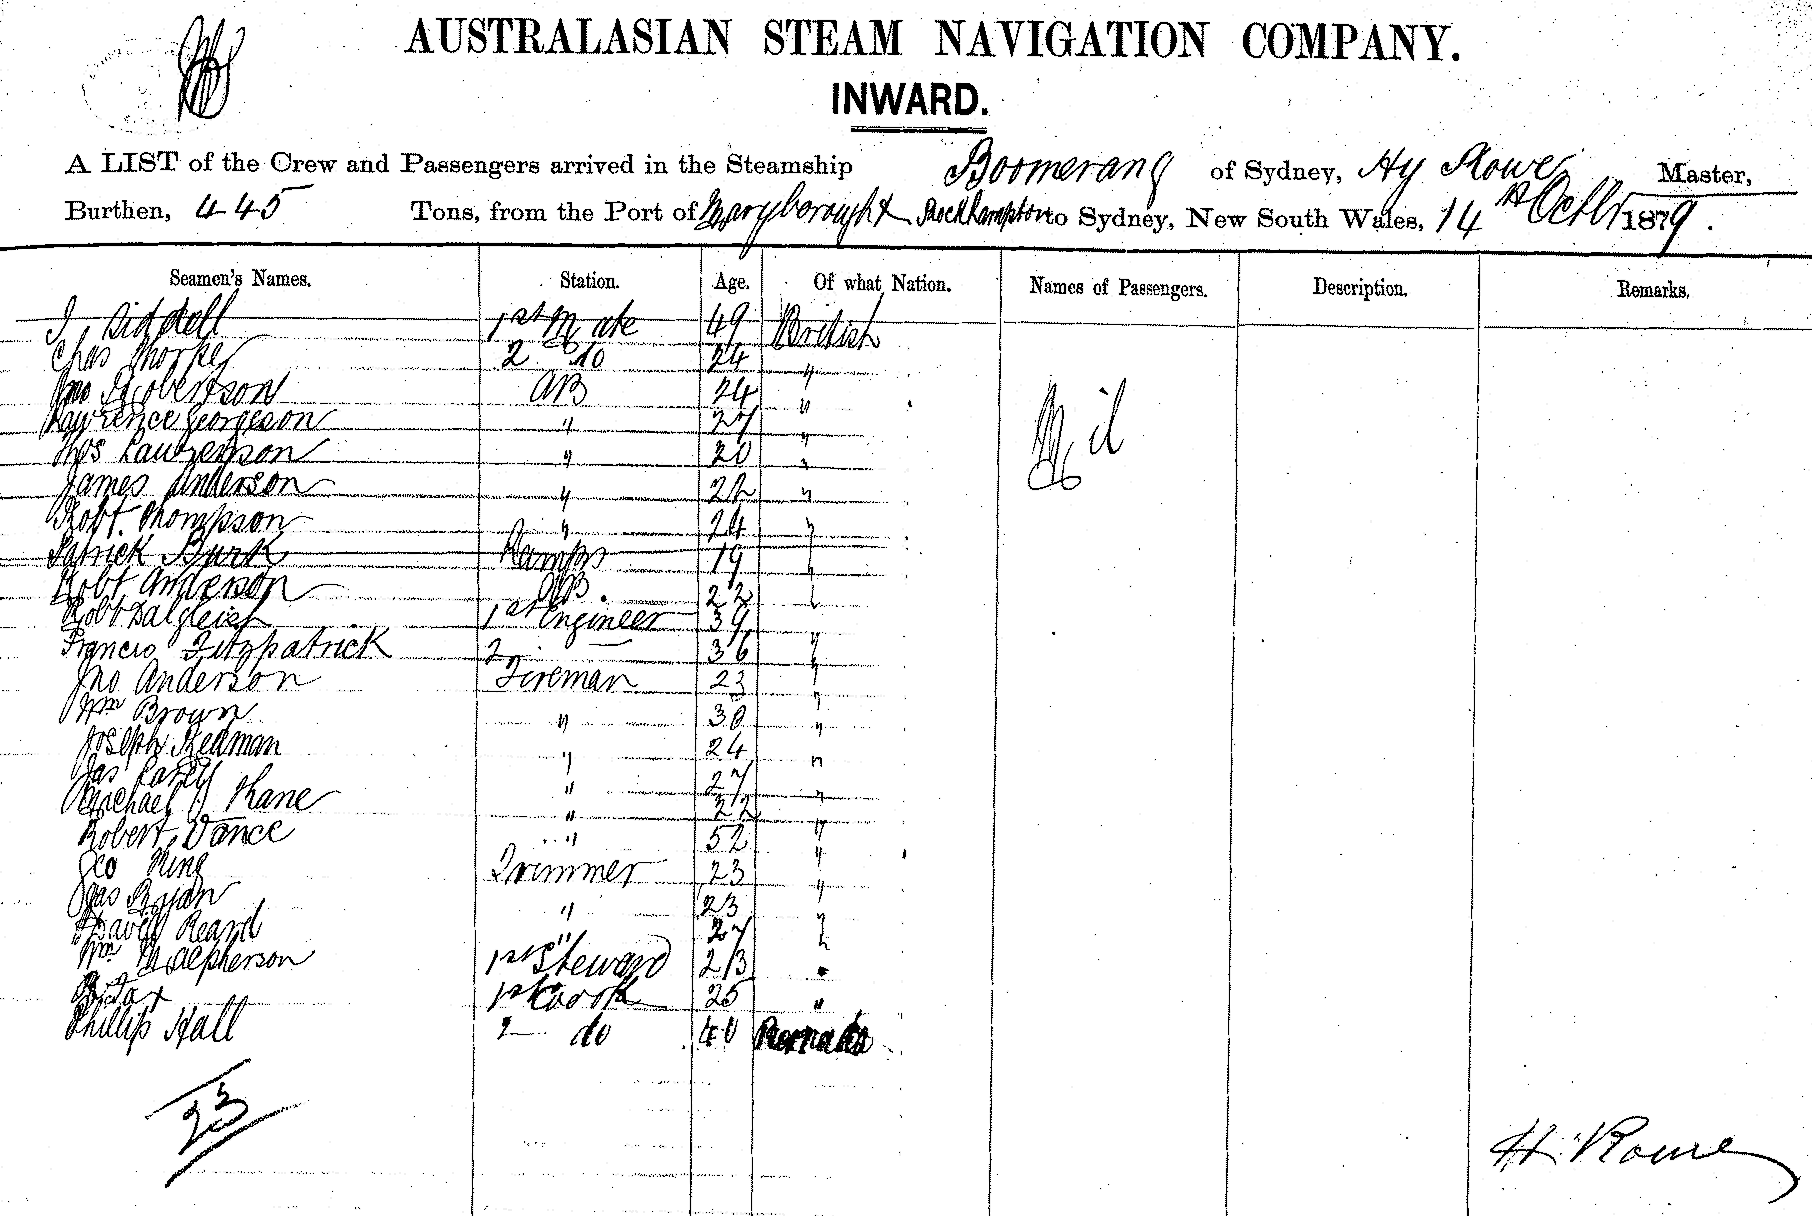 AUSTRALASIAN STEAM NAVIGATION COMPANY.
INWARD.
A LIST of the Crew and Passengers arrived in the Steamship Boomerang of Sydney, Hy Rowe, Master,
Burthen, 445 Tons, from the Port of Maryborough & Rockhampton to Sydney, New South Wales, 14th Octbr 1879.
Seamen's Names. Station. Age. Of what Nation. Names of Passengers. Description. Remarks.
Siddell 1st Mate 49 British
Chas Thorpe 2 Do 24 "
Jno Robertson AB 24 " Nil
Lawrence Georgeson " 27 "
Thos Laurenson " 20 "
James Anderson " 22 "
Robt Thompson " 24 "
Patrick Burk Lamps 19 "
Robt Anderson AB. 22 "
Robt Dalgleish 1st Engineer 39 "
Francis Fitzpatrick 2 36 "
Jno Anderson Fireman 23 "
Wm Brown " 30 "
Joseph Redman " 24 "
Jas " 27 "
Michael Kane " 22 "
Robert Vance " 52 "
Geo King Trimmer 23 "
Jas Ryan " 23 "
David Heard " 27 "
Wm McPherson 1st Steward 23 "
1st Cook 25 "
Phillip Hall 2 do 40
23
H. Rowe